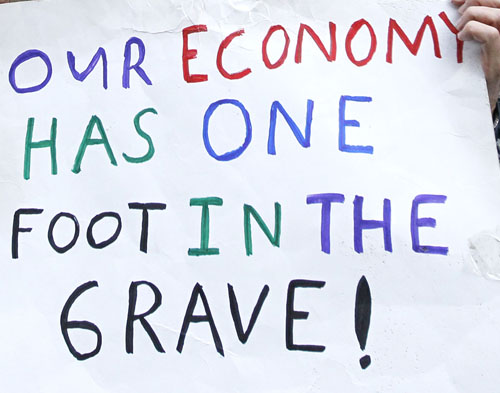 OUR ECONOMY
HAS ONE
FOOT IN THE
GRAVE!